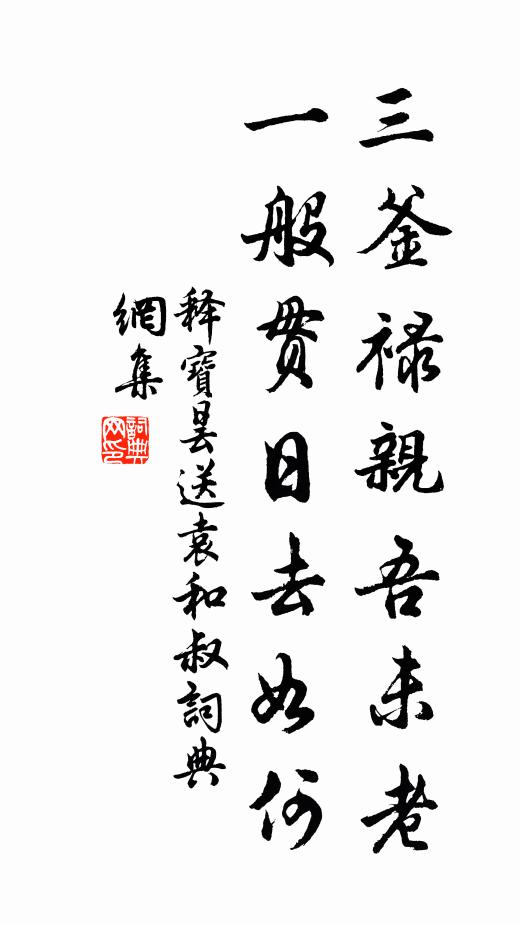 三釜禄親吾未老
一般贯日去如何
释寶昙送袁和叔詞典
網集
詞典
网印